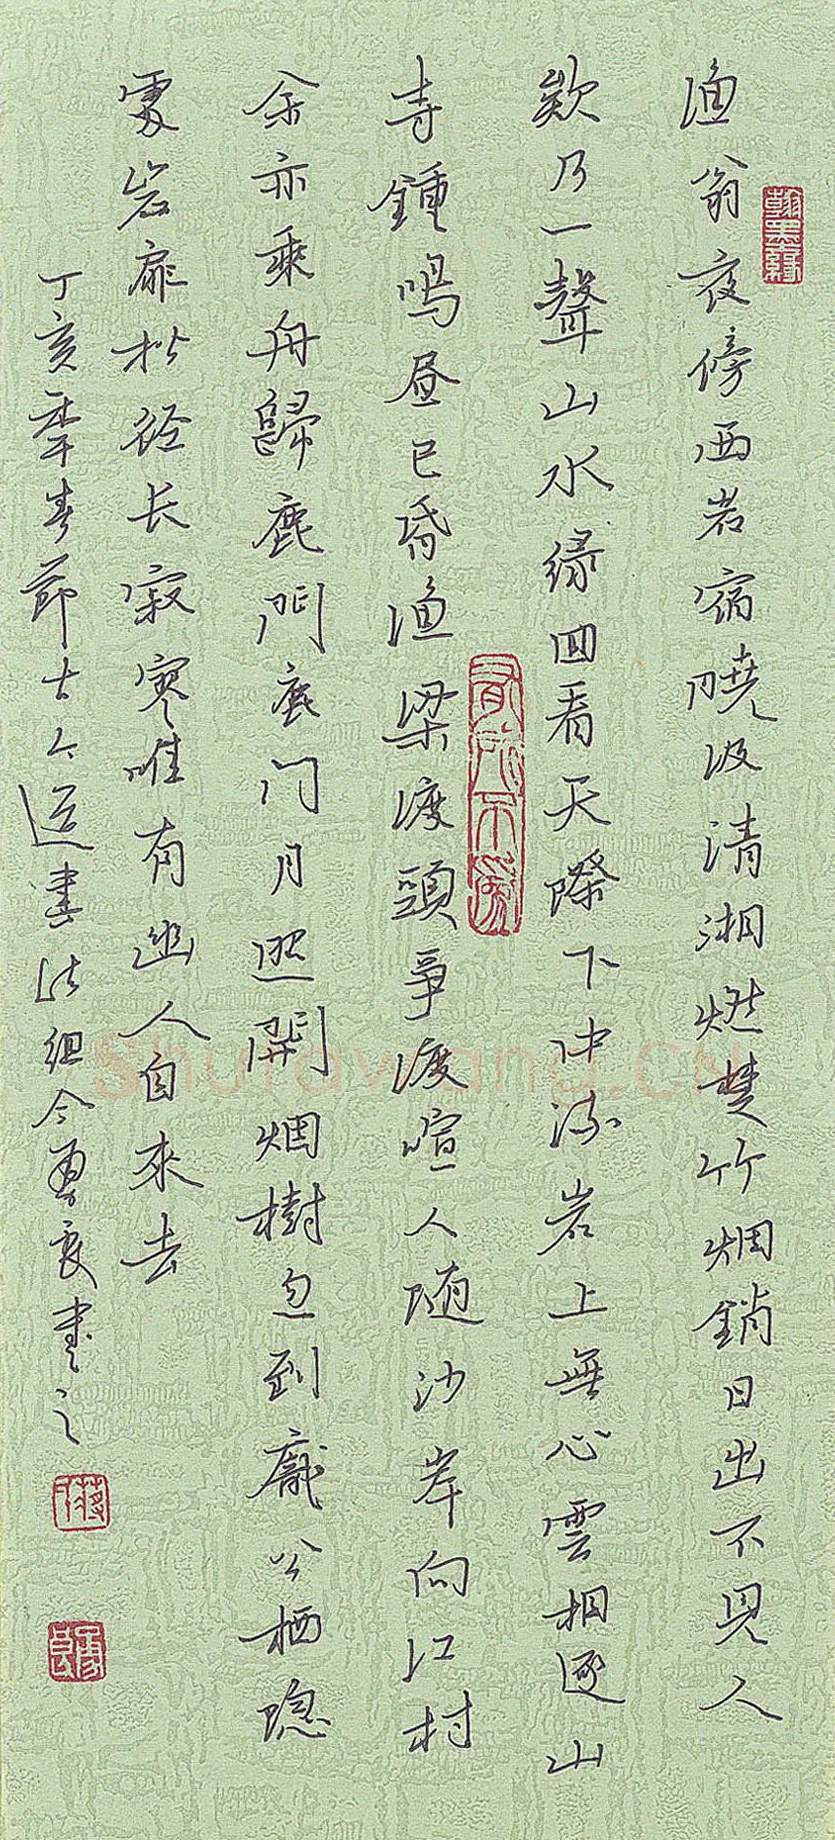 渔翁夜傍西岩宿晓汲清湘燃楚竹烟銷日出不见人
欸乃一聲山水绿回看天際下中流岩上無心雲相逐山
寺鍾鸣昼已昏渔梁渡頭争渡喧人随沙岸向江村
余亦乘舟歸鹿門鹿门月照開烟樹忽到龐公栖隐
處岩扉松径长寂寥唯有幽人自來去
丁亥季春節古今選書法組今勇良書之
翰墨緣
Shufawang.CN